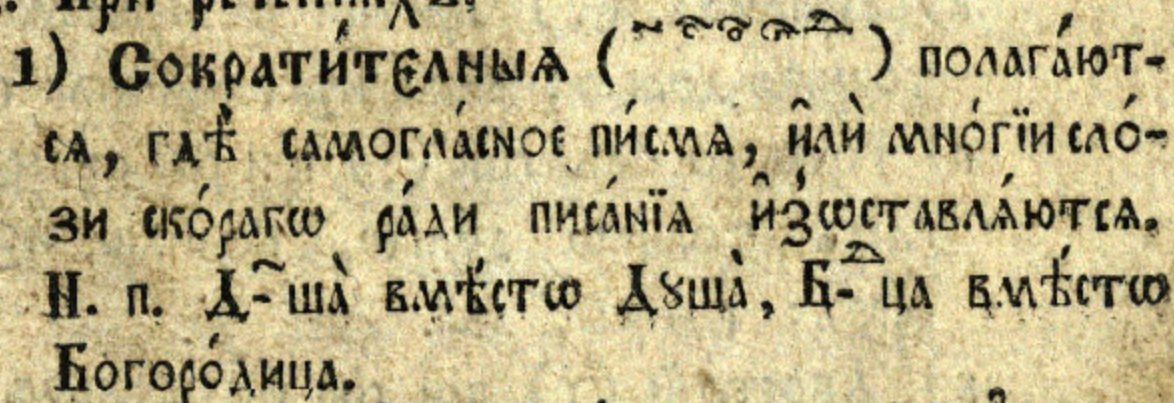 1) Сократи́тєлныѧ ( ҃ ⷭ ⷪ ⷬ ⷣ ) полага́ют-
сѧ, гдѣ̀ самогла́сное пи́смѧ, и҆лѝ мно́гїи сло́-
зи ско́рагѡ ра́ди писа́нїѧ и҆зѡставлѧ́ютсѧ.
Н. п. Д-҃ша̀ вмѣ́стѡ Дꙋша̀, Б-ⷣца вмѣ́стѡ
Богоро́дица.